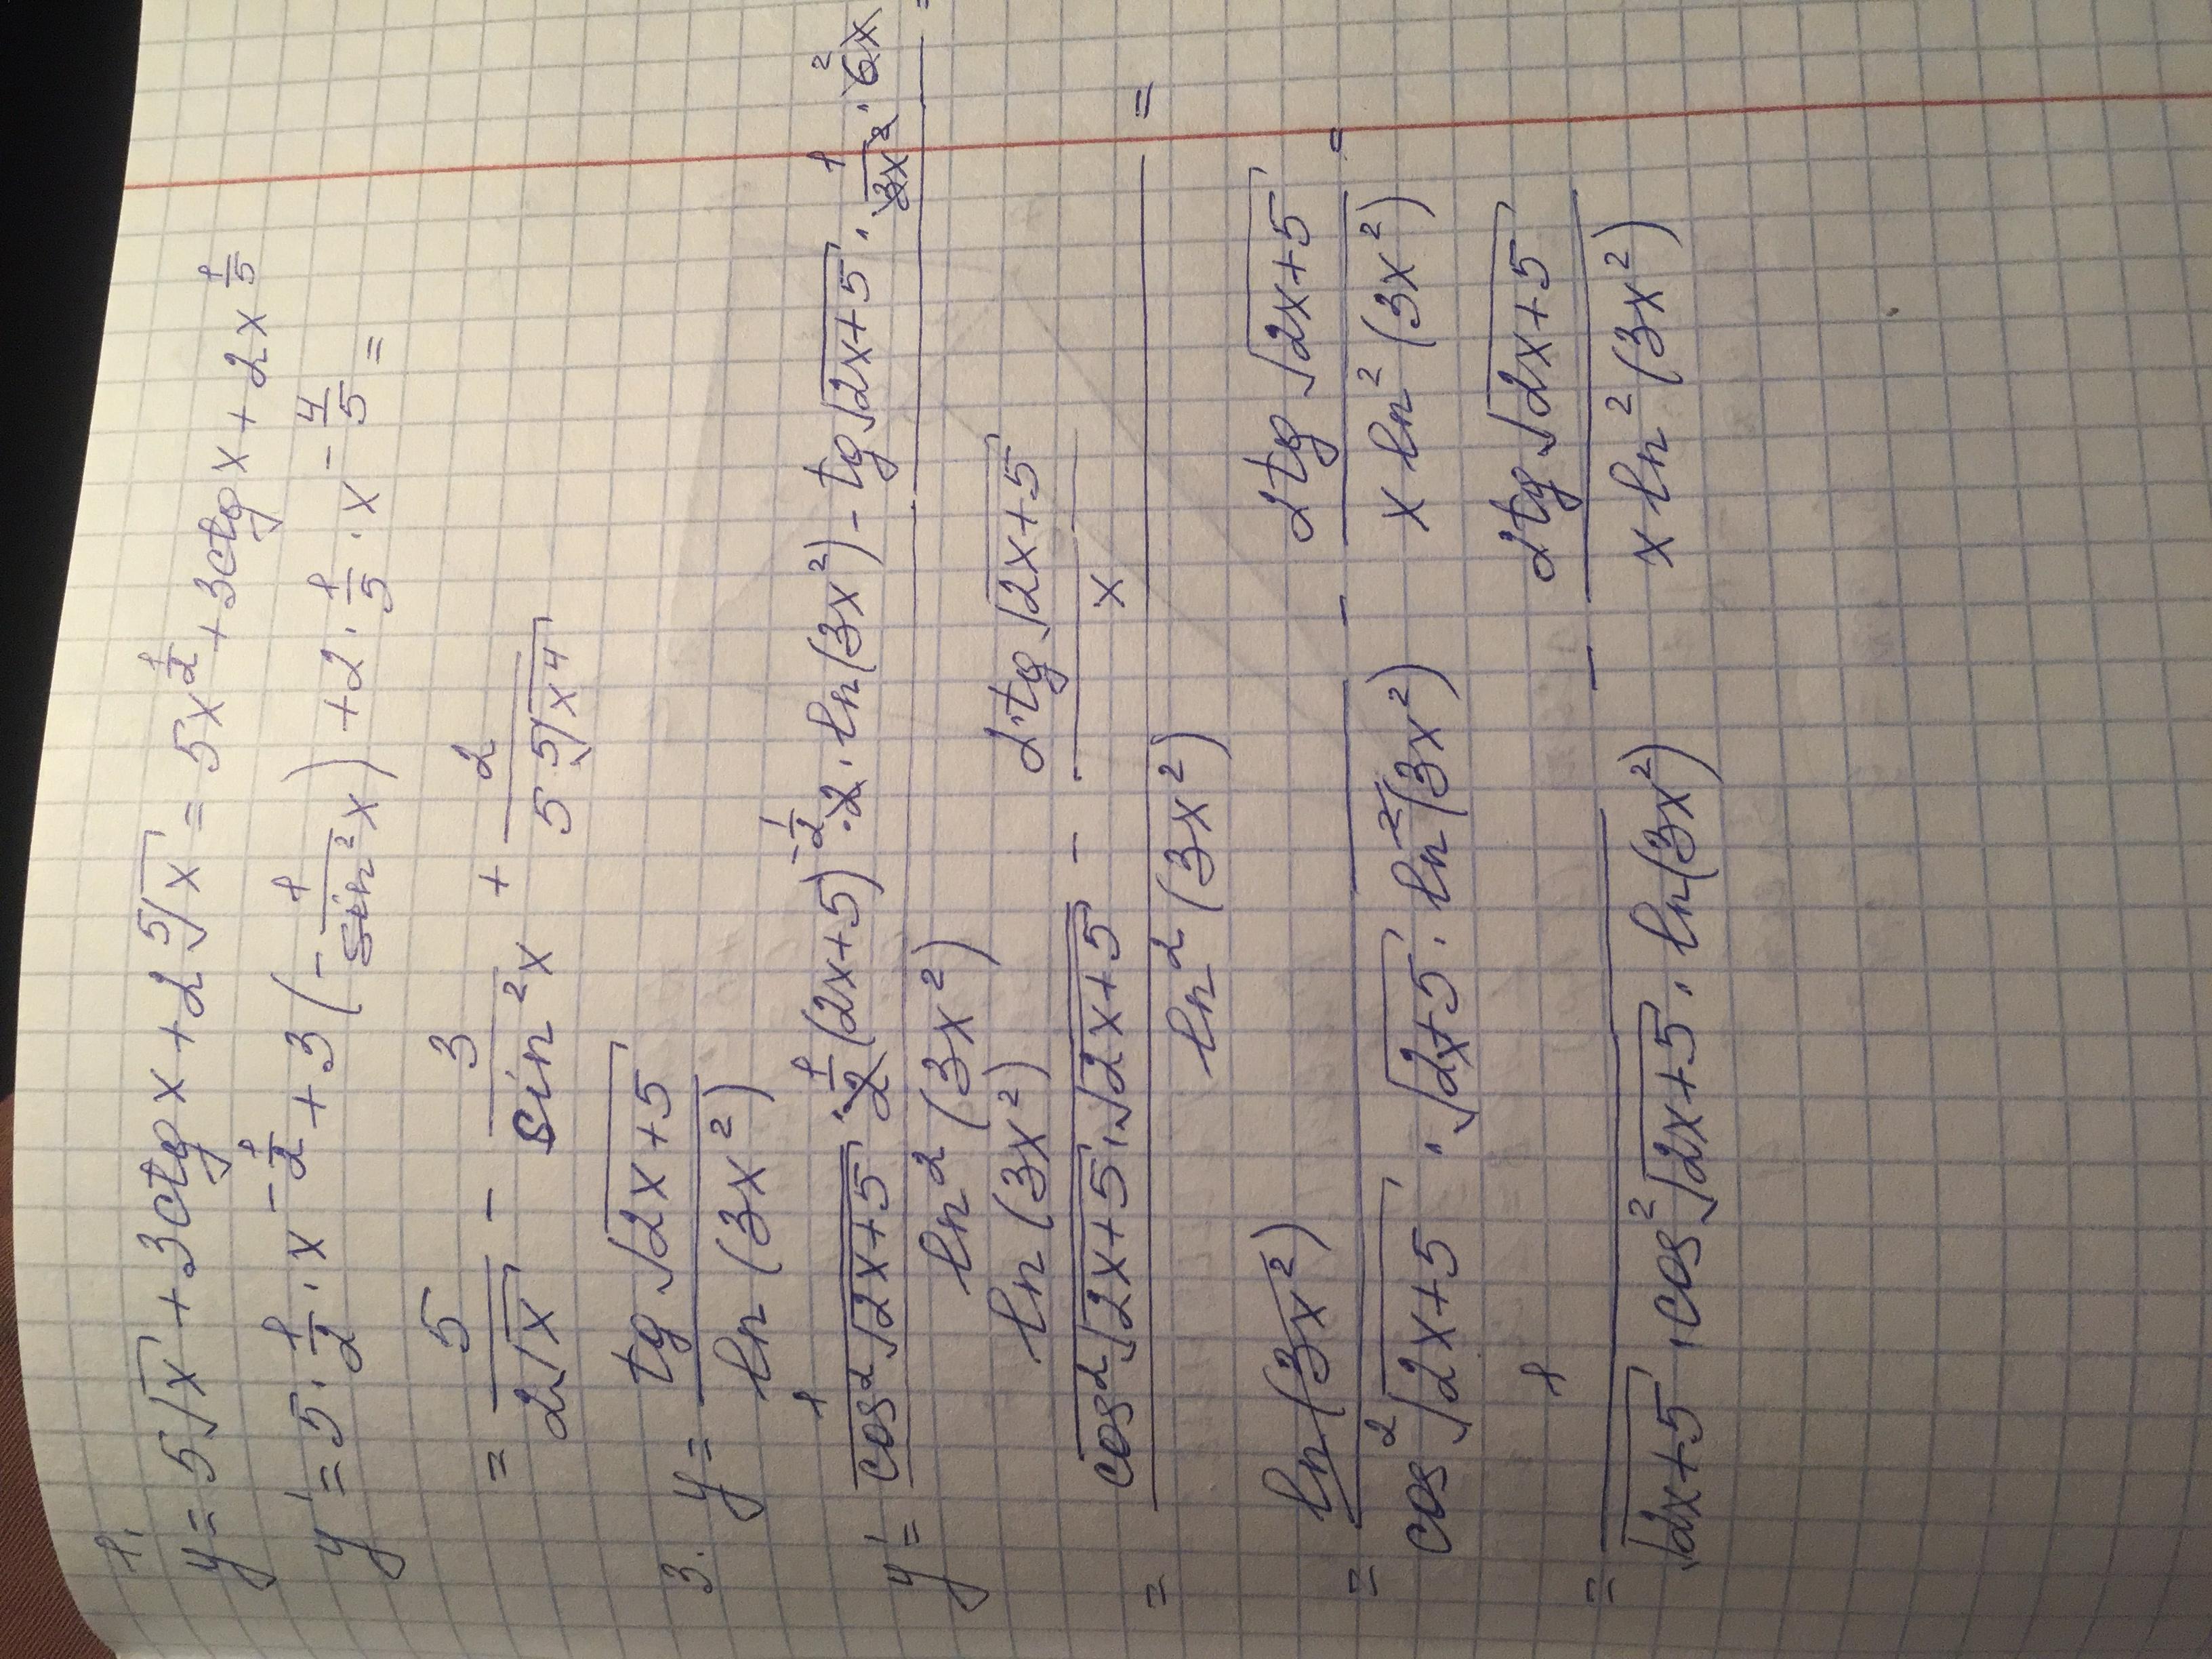 1.
y = 5√x + 3ctg x + 2 ⁵√x = 5x^(1/2) + 3ctg x + 2x^(1/5)
y' = 5 · 1/2 · x^(-1/2) + 3(-1/sin²x) + 2 · 1/5 · x^(-4/5) =
= 5/(2√x) - 3/(sin²x) + 2/(5 ⁵√(x⁴))
3. y = tg √(2x+5) / ln(3x²)
y' = (1/(cos²√(2x+5)) · 1/2 (2x+5)^(-1/2) · 2 · ln(3x²) - tg√(2x+5) · 1/(3x²) · 6x) / ln²(3x²) =
= (ln(3x²)/(cos²√(2x+5) · √(2x+5)) - 2·tg√(2x+5)/x) / ln²(3x²) =
= ln(3x²)/(cos²√(2x+5) · √(2x+5) · ln²(3x²)) - 2tg√(2x+5)/(x ln²(3x²)) =
= 1/(√(2x+5) · cos²√(2x+5) · ln(3x²)) - 2tg√(2x+5)/(x ln²(3x²))